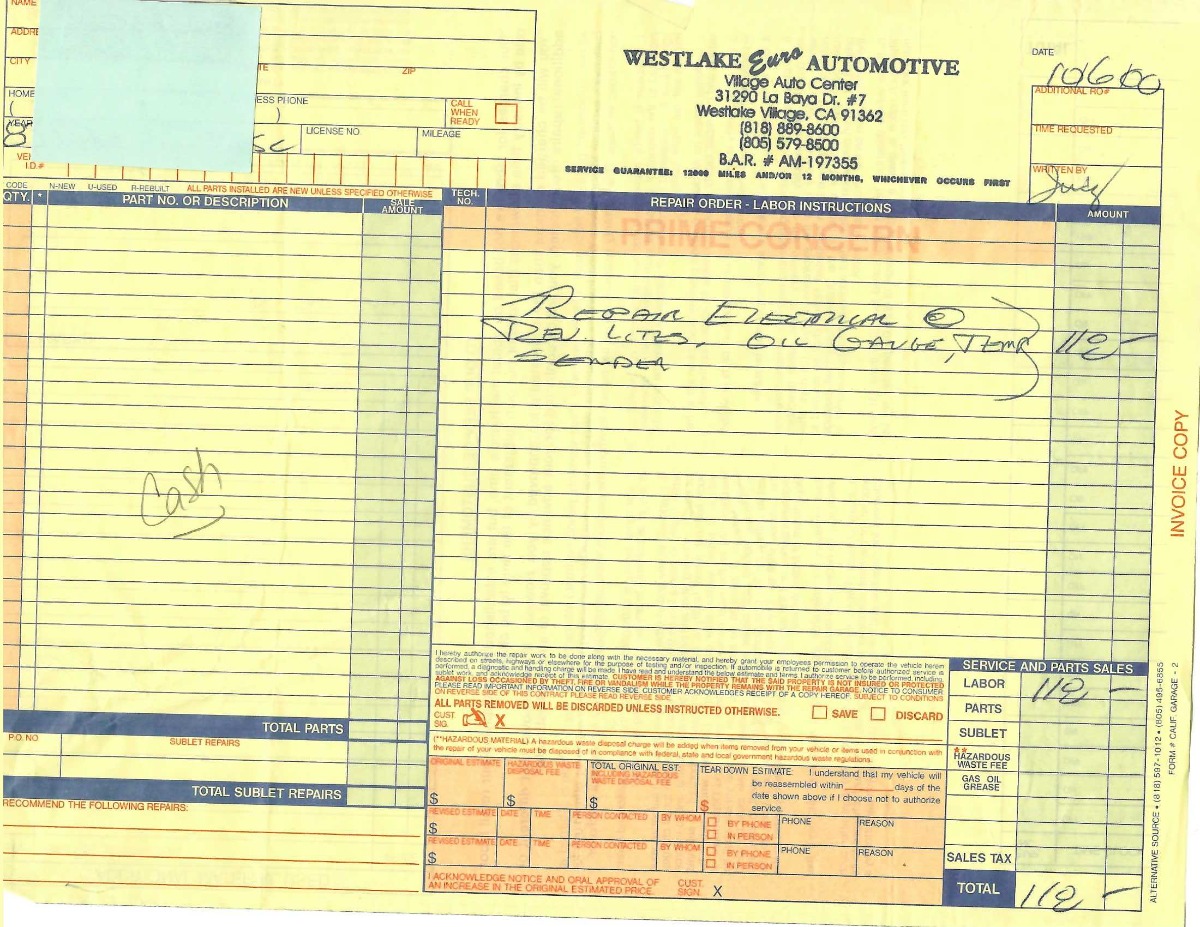 NAME
ADDRE
CITY
TE
ZIP
HOME
ESS PHONE
(
)
CALL
WHEN
READY
YEAR
8
SC
LICENSE NO.
MILEAGE
VE
I.D.#
WESTLAKE Euro AUTOMOTIVE
Village Auto Center
31290 La Baya Dr. #7
Westlake Village, CA 91362
(818) 889-8600
(805) 579-8500
B.A.R. # AM-197355
SERVICE GUARANTEE: 12000 MILES AND/OR 12 MONTHS, WHICHEVER OCCURS FIRST
DATE
10/6/00
ADDITIONAL RO#
TIME REQUESTED
WRITTEN BY
Judy
CODE N-NEW U-USED R-REBUILT ALL PARTS INSTALLED ARE NEW UNLESS SPECIFIED OTHERWISE
QTY. * PART NO. OR DESCRIPTION SALE AMOUNT
TECH. NO. REPAIR ORDER - LABOR INSTRUCTIONS AMOUNT
PRIME CONCERN
REPAIR ELECTRICAL @
REV. LITES, OIL GAUGE, TEMP
SENDER
Cash
INVOICE COPY
I hereby authorize the repair work to be done along with the necessary material, and hereby grant your employees permission to operate the vehicle herein
described on streets, highways or elsewhere for the purpose of testing and/or inspection. If automobile is returned to customer before authorized service is
performed, a diagnostic and handling charge will be made. I have read and understand the below estimate and terms. I authorize service to be performed, including
sublet work, and acknowledge receipt of this estimate. CUSTOMER IS HEREBY NOTIFIED THAT THE SAID PROPERTY IS NOT INSURED OR PROTECTED
AGAINST LOSS OCCASIONED BY THEFT, FIRE OR VANDALISM WHILE THE PROPERTY REMAINS WITH THE REPAIR GARAGE. NOTICE TO CONSUMER
PLEASE READ IMPORTANT INFORMATION ON REVERSE SIDE. CUSTOMER ACKNOWLEDGES RECEIPT OF A COPY HEREOF. SUBJECT TO CONDITIONS
ON REVERSE SIDE OF THIS CONTRACT PLEASE READ REVERSE SIDE.
ALL PARTS REMOVED WILL BE DISCARDED UNLESS INSTRUCTED OTHERWISE.
SAVE
DISCARD
CUST.
SIG. X
(**HAZARDOUS MATERIAL) A hazardous waste disposal charge will be added when items removed from your vehicle or items used in conjunction with
the repair of your vehicle must be disposed of in compliance with federal, state and local government hazardous waste regulations.
TOTAL PARTS
P.O. NO
SUBLET REPAIRS
TOTAL SUBLET REPAIRS
RECOMMEND THE FOLLOWING REPAIRS:
ORIGINAL ESTIMATE
$
HAZARDOUS WASTE
DISPOSAL FEE
$
TOTAL ORIGINAL EST.
INCLUDING HAZARDOUS
WASTE DISPOSAL FEE
$
TEAR DOWN ESTIMATE. I understand that my vehicle will
be reassembled within ______ days of the
date shown above if I choose not to authorize
service.
$
REVISED ESTIMATE DATE TIME PERSON CONTACTED BY WHOM BY PHONE PHONE REASON
$
IN PERSON
REVISED ESTIMATE DATE TIME PERSON CONTACTED BY WHOM BY PHONE PHONE REASON
$
IN PERSON
I ACKNOWLEDGE NOTICE AND ORAL APPROVAL OF
AN INCREASE IN THE ORIGINAL ESTIMATED PRICE.
CUST.
SIGN. X
SERVICE AND PARTS SALES
LABOR
PARTS
SUBLET
**
HAZARDOUS
WASTE FEE
GAS OIL
GREASE
SALES TAX
TOTAL
ALTERNATIVE SOURCE • (818) 597-1012 • (805) 496-6885
FORM # CALIF. GARAGE - 2